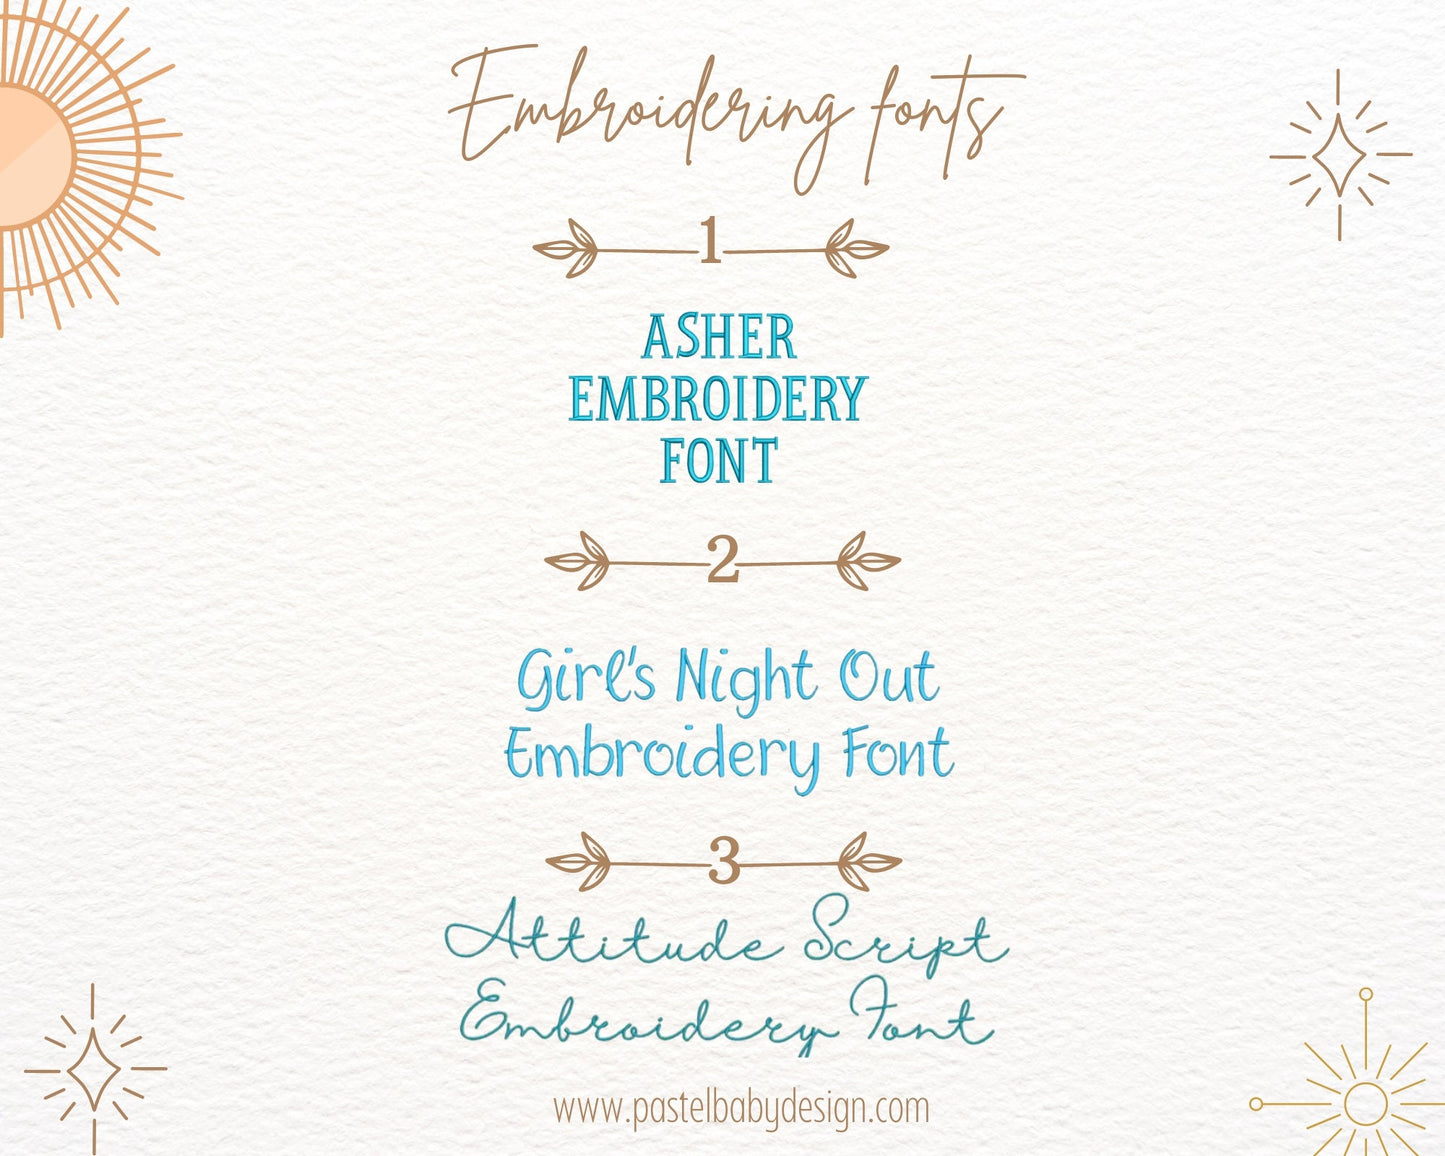 Embroidering fonts
1
ASHER
EMBROIDERY
FONT
2
Girl's Night Out
Embroidery Font
3
Attitude Script
Embroidery Font
www.pastelbabydesign.com